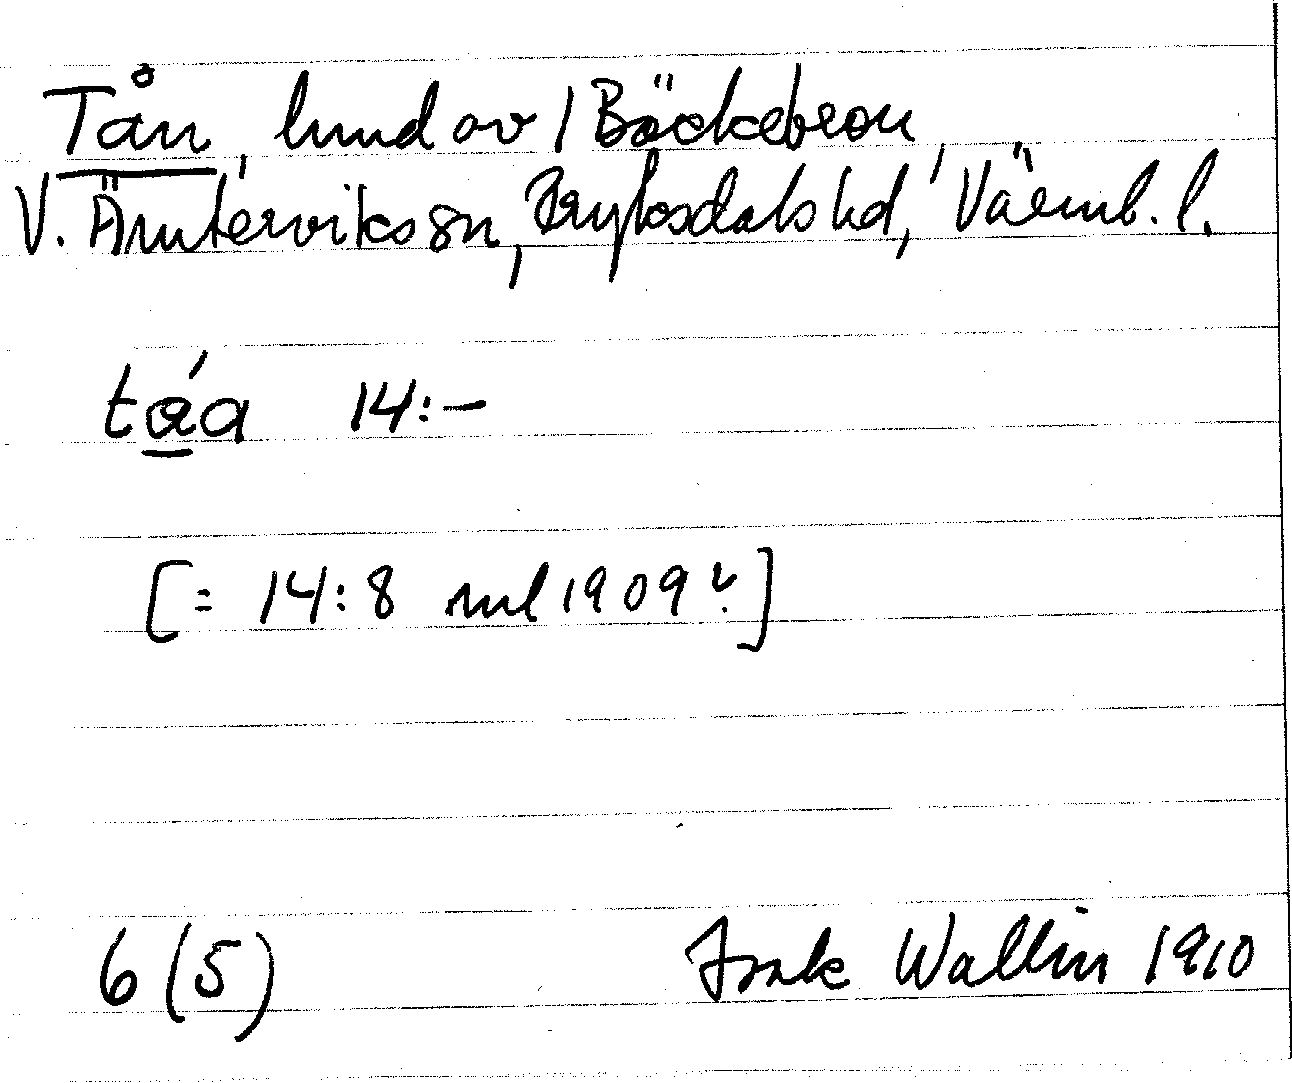 Tån, lund av 1 Bäckebron,
V. Ämterviks sn, Fryksdals hd, Värml. l.
tá̲a 14:-
[= 14:8 ml 1909?]
6 (5) Isak Wallin 1910